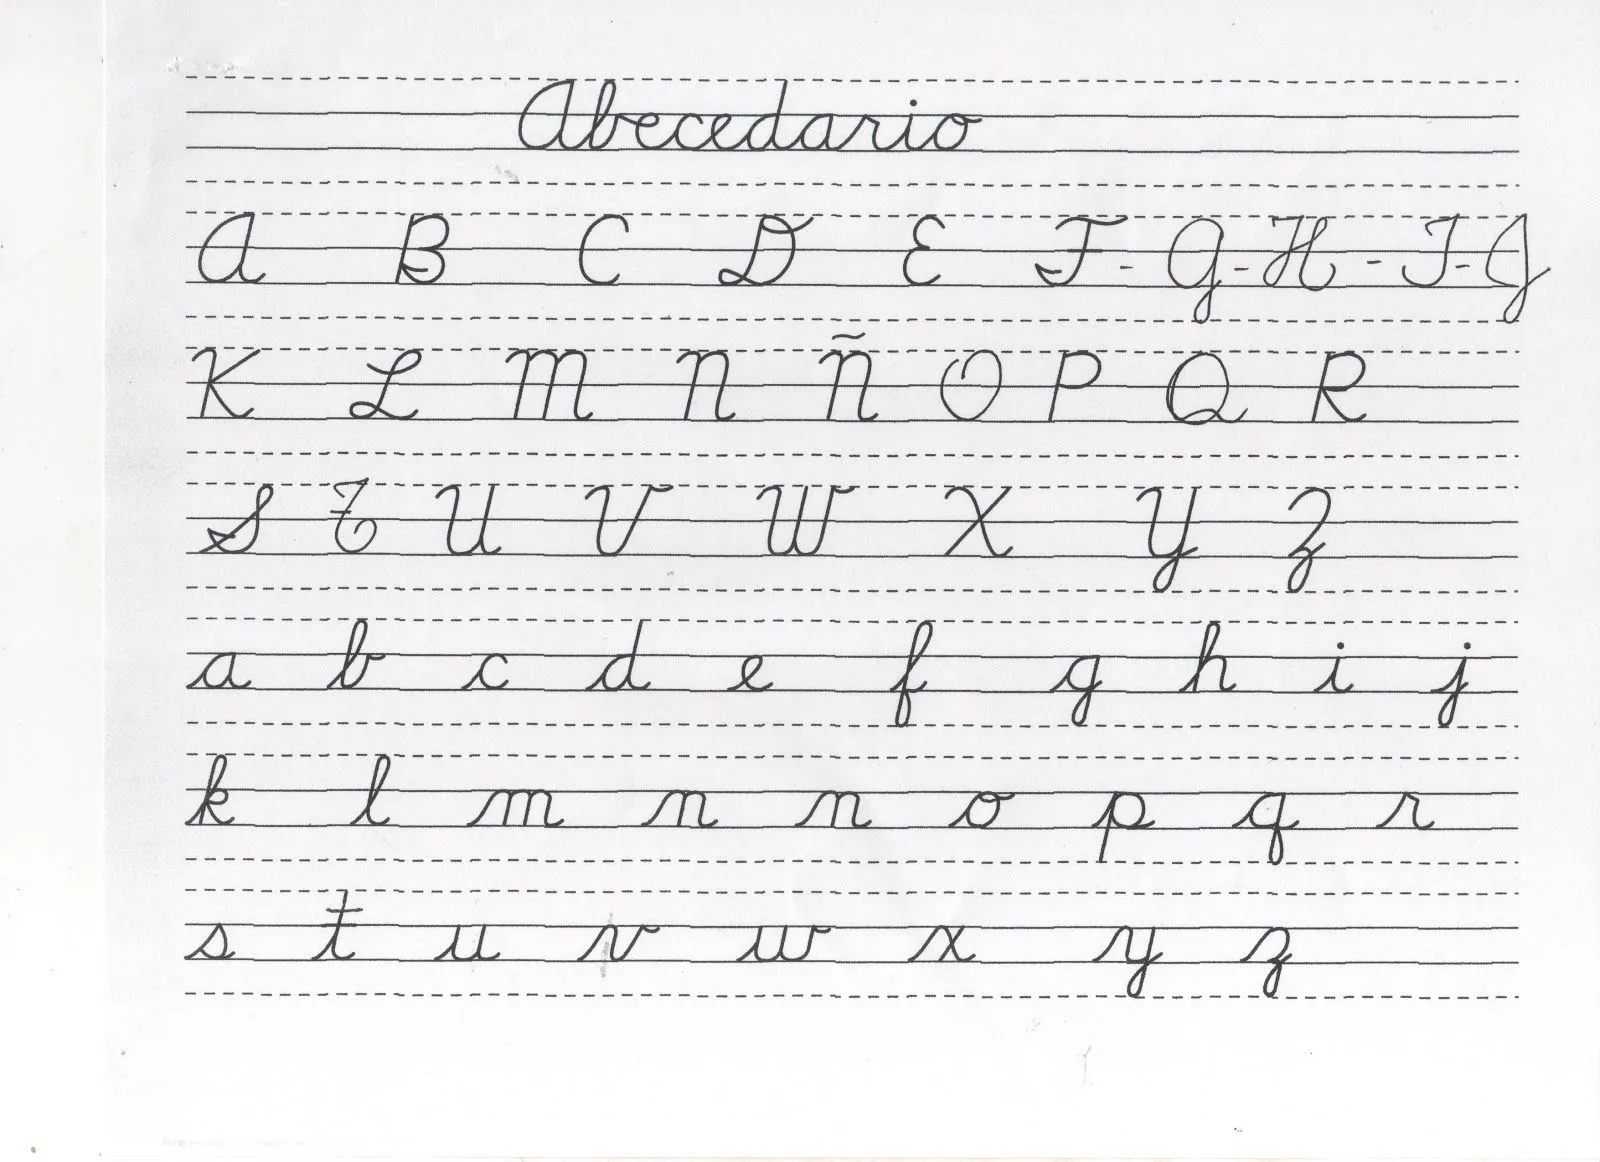 Abecedario
A B C D E F - G - H - I - J
K L M N Ñ O P Q R
S T U V W X Y Z
a b c d e f g h i j
k l m n n o p q r
s t u v w x y z